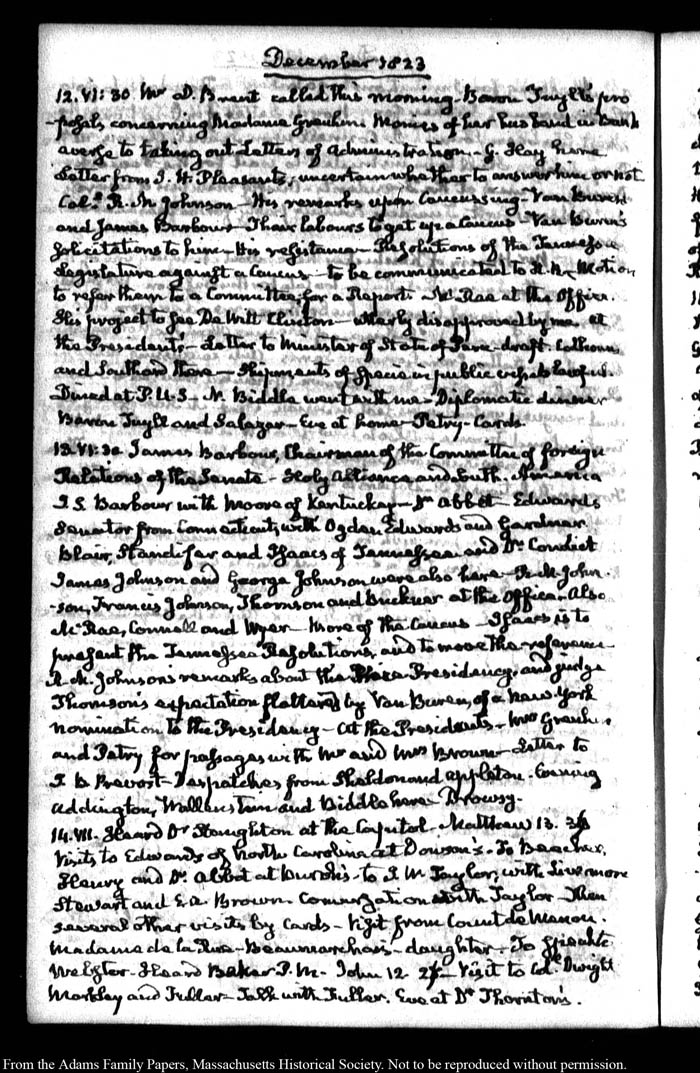 December 1823
12. VI: 30 Mr D. Brent called this morning. Baron Tuyll's pro
-posals concerning Madame Greuhm Monies of her husband in Bank
averse to taking out Letters of Administration. G. Hay here
Letter from J. H. Pleasants, uncertain whether to answer him or not
Col. R. M Johnson - His remarks upon Caucussing - Van Buren
and James Barbour - Their labours to get up a Caucus - Van Buren's
solicitations to him - His resistance - Resolutions of the Tennessee
Legislature against a Caucus - to be communicated to H. R. Motion
to refer them to a Committee, for a Report. McRae at the Office.
His project to see De Witt Clinton - utterly disapproved by me. at
the President's - Letter to Minister of State of Peru - draft. Calhoun
and Southard there - Shipments of Specie in public vessels lawful.
Dined at P. U. S - N. Biddle went with me - Diplomatic dinner
Baron Tuyll and Salazar - Eve at home - Petry - Cards.
13. VI: 30 James Barbour, Chairman of the Committee of foreign
Relations of the Senate - Holy Alliance and South. America
J. S. Barbour with Moore of Kentucky - Dr Abbot - Edwards
Senator from Connecticut, with Ogden Edwards and Gardner
Blair, Standifer and Isaacs of Tennessee and Dr Condict
James Johnson and George Johnson were also here - R. M. John
-son, Francis Johnson, Thomson and Buckner at the Office. Also
McRae, Connell and Wyer - More of the Caucus - Isaacs is to
present the Tennessee Resolutions, and to move the reference
R. M. Johnson's remarks about the Vice Presidency, and judge
Thomson's expectation flattered by Van Buren, of a New York
nomination to the Presidency - At the President's - Mrs Greuhm
and Petry for passages with Mr and Mrs Brown - Letter to
J. B. Prevost - Despatches from Sheldon and Appleton. Evening
Addington, Wallenstein and Biddle here. Drowsy.
14. VII. Heard Dr Staughton at the Capitol. Matthew 13. 36
Visits to Edwards of North Carolina at Dowson's. To Beecher,
Henry and Dr. Abbot at Burch's - to J. W Taylor, with Livermore
Stewart and E. Brown. Conversation with Taylor - Then
several other visits by cards - Visit from Count de Menou.
Madame de la Rue - Beaumarchais - daughter - To Speak to
Webster. Heard Baker P. M. John 12. Visit to Col. Dwight
Markley and Fuller - Talk with Fuller. Eve at Dr Thornton's.
From the Adams Family Papers, Massachusetts Historical Society. Not to be reproduced without permission.